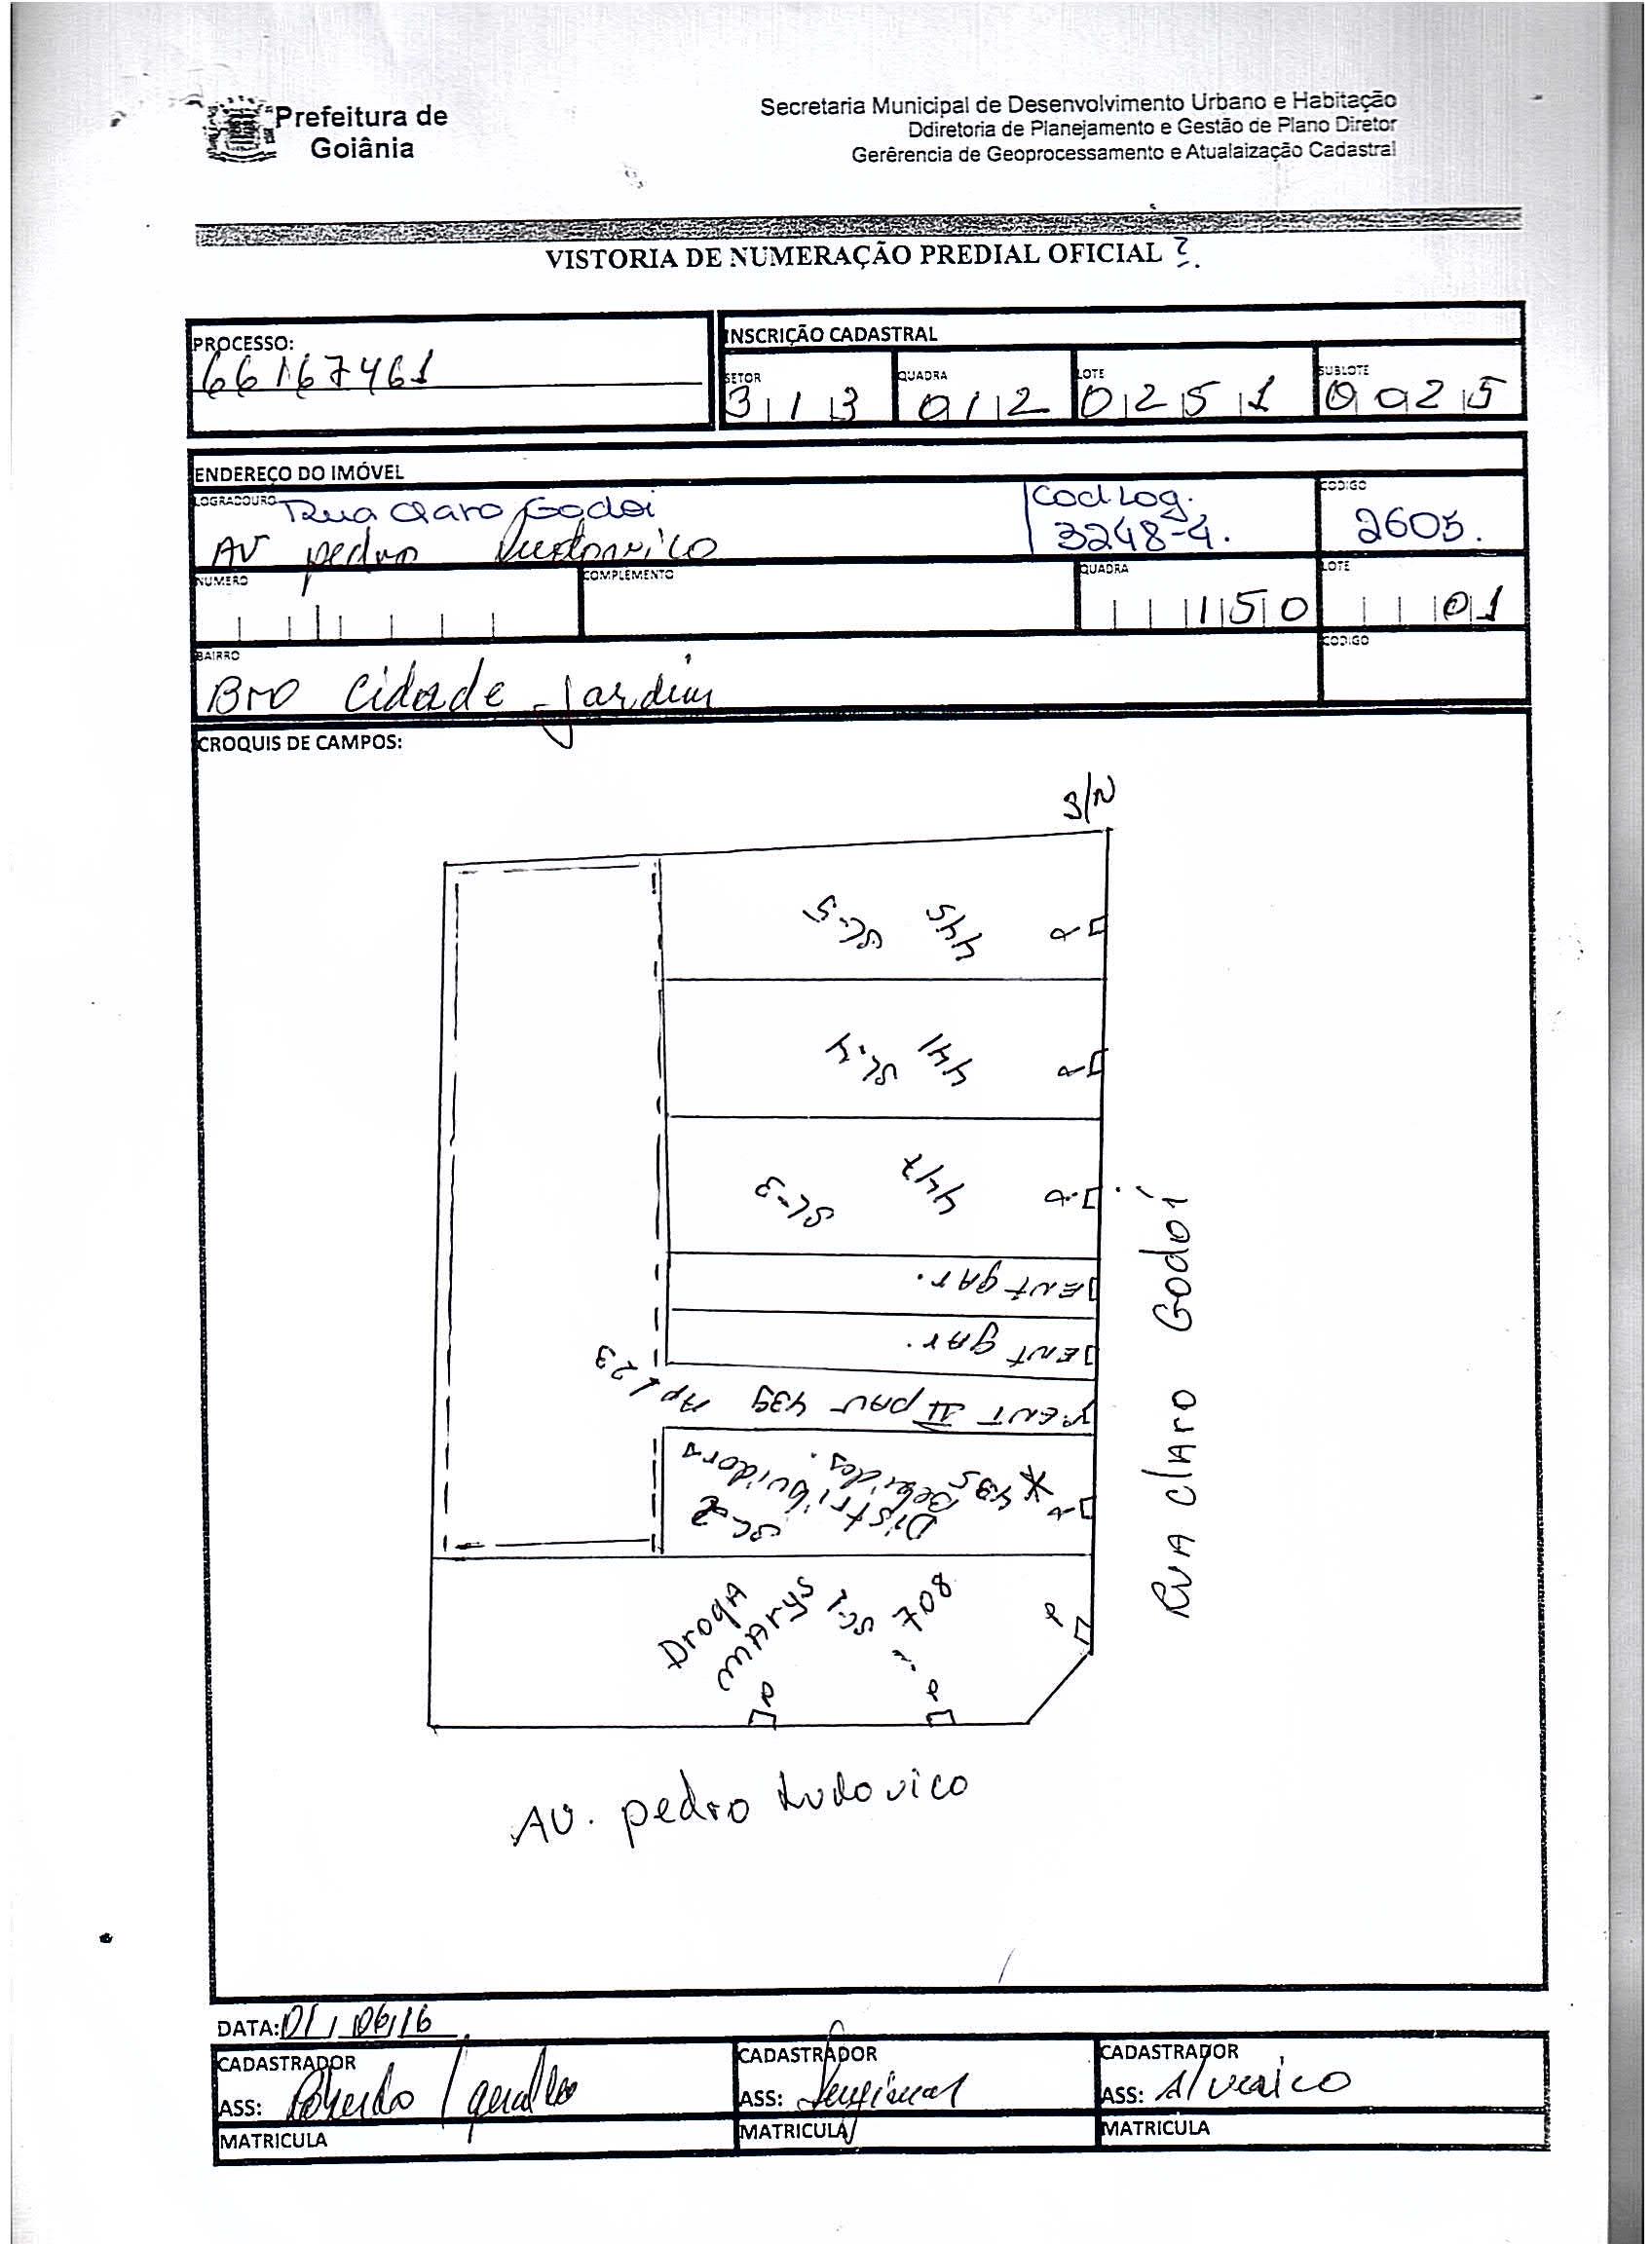 Prefeitura de
Goiânia
Secretaria Municipal de Desenvolvimento Urbano e Habitação
Ddiretoria de Planejamento e Gestão de Plano Diretor
Gerêrencia de Geoprocessamento e Atualaização Cadastral
VISTORIA DE NUMERAÇÃO PREDIAL OFICIAL
PROCESSO:
66167461
INSCRIÇÃO CADASTRAL
SETOR
313
QUADRA
012
LOTE
0251
SUBLOTE
0025
ENDEREÇO DO IMÓVEL
LOGRADOURO
Rua Claro Godoi
AV pedro Ludovico
Cod Log.
3248-4.
CODIGO
2605.
NUMERO
COMPLEMENTO
QUADRA
150
LOTE
01
BAIRRO
Bro Cidade Jardim
CODIGO
CROQUIS DE CAMPOS:
S/N
SL-5
445
P
SL-4
441
P
SL-3
447
P
ENT gAr.
ENT gAr.
P ENT II pAV 439 Ap 1,23
* 435
Distribuidora
Bebidas.
SL-2
P
DrogA
MArys
SL-1
708
P
P
P
RuA ClAro Godoi
AV. pedro Ludovico
DATA: 01/06/16
CADASTRADOR
ASS:
MATRICULA
CADASTRADOR
ASS:
MATRICULA
CADASTRADOR
ASS:
MATRICULA